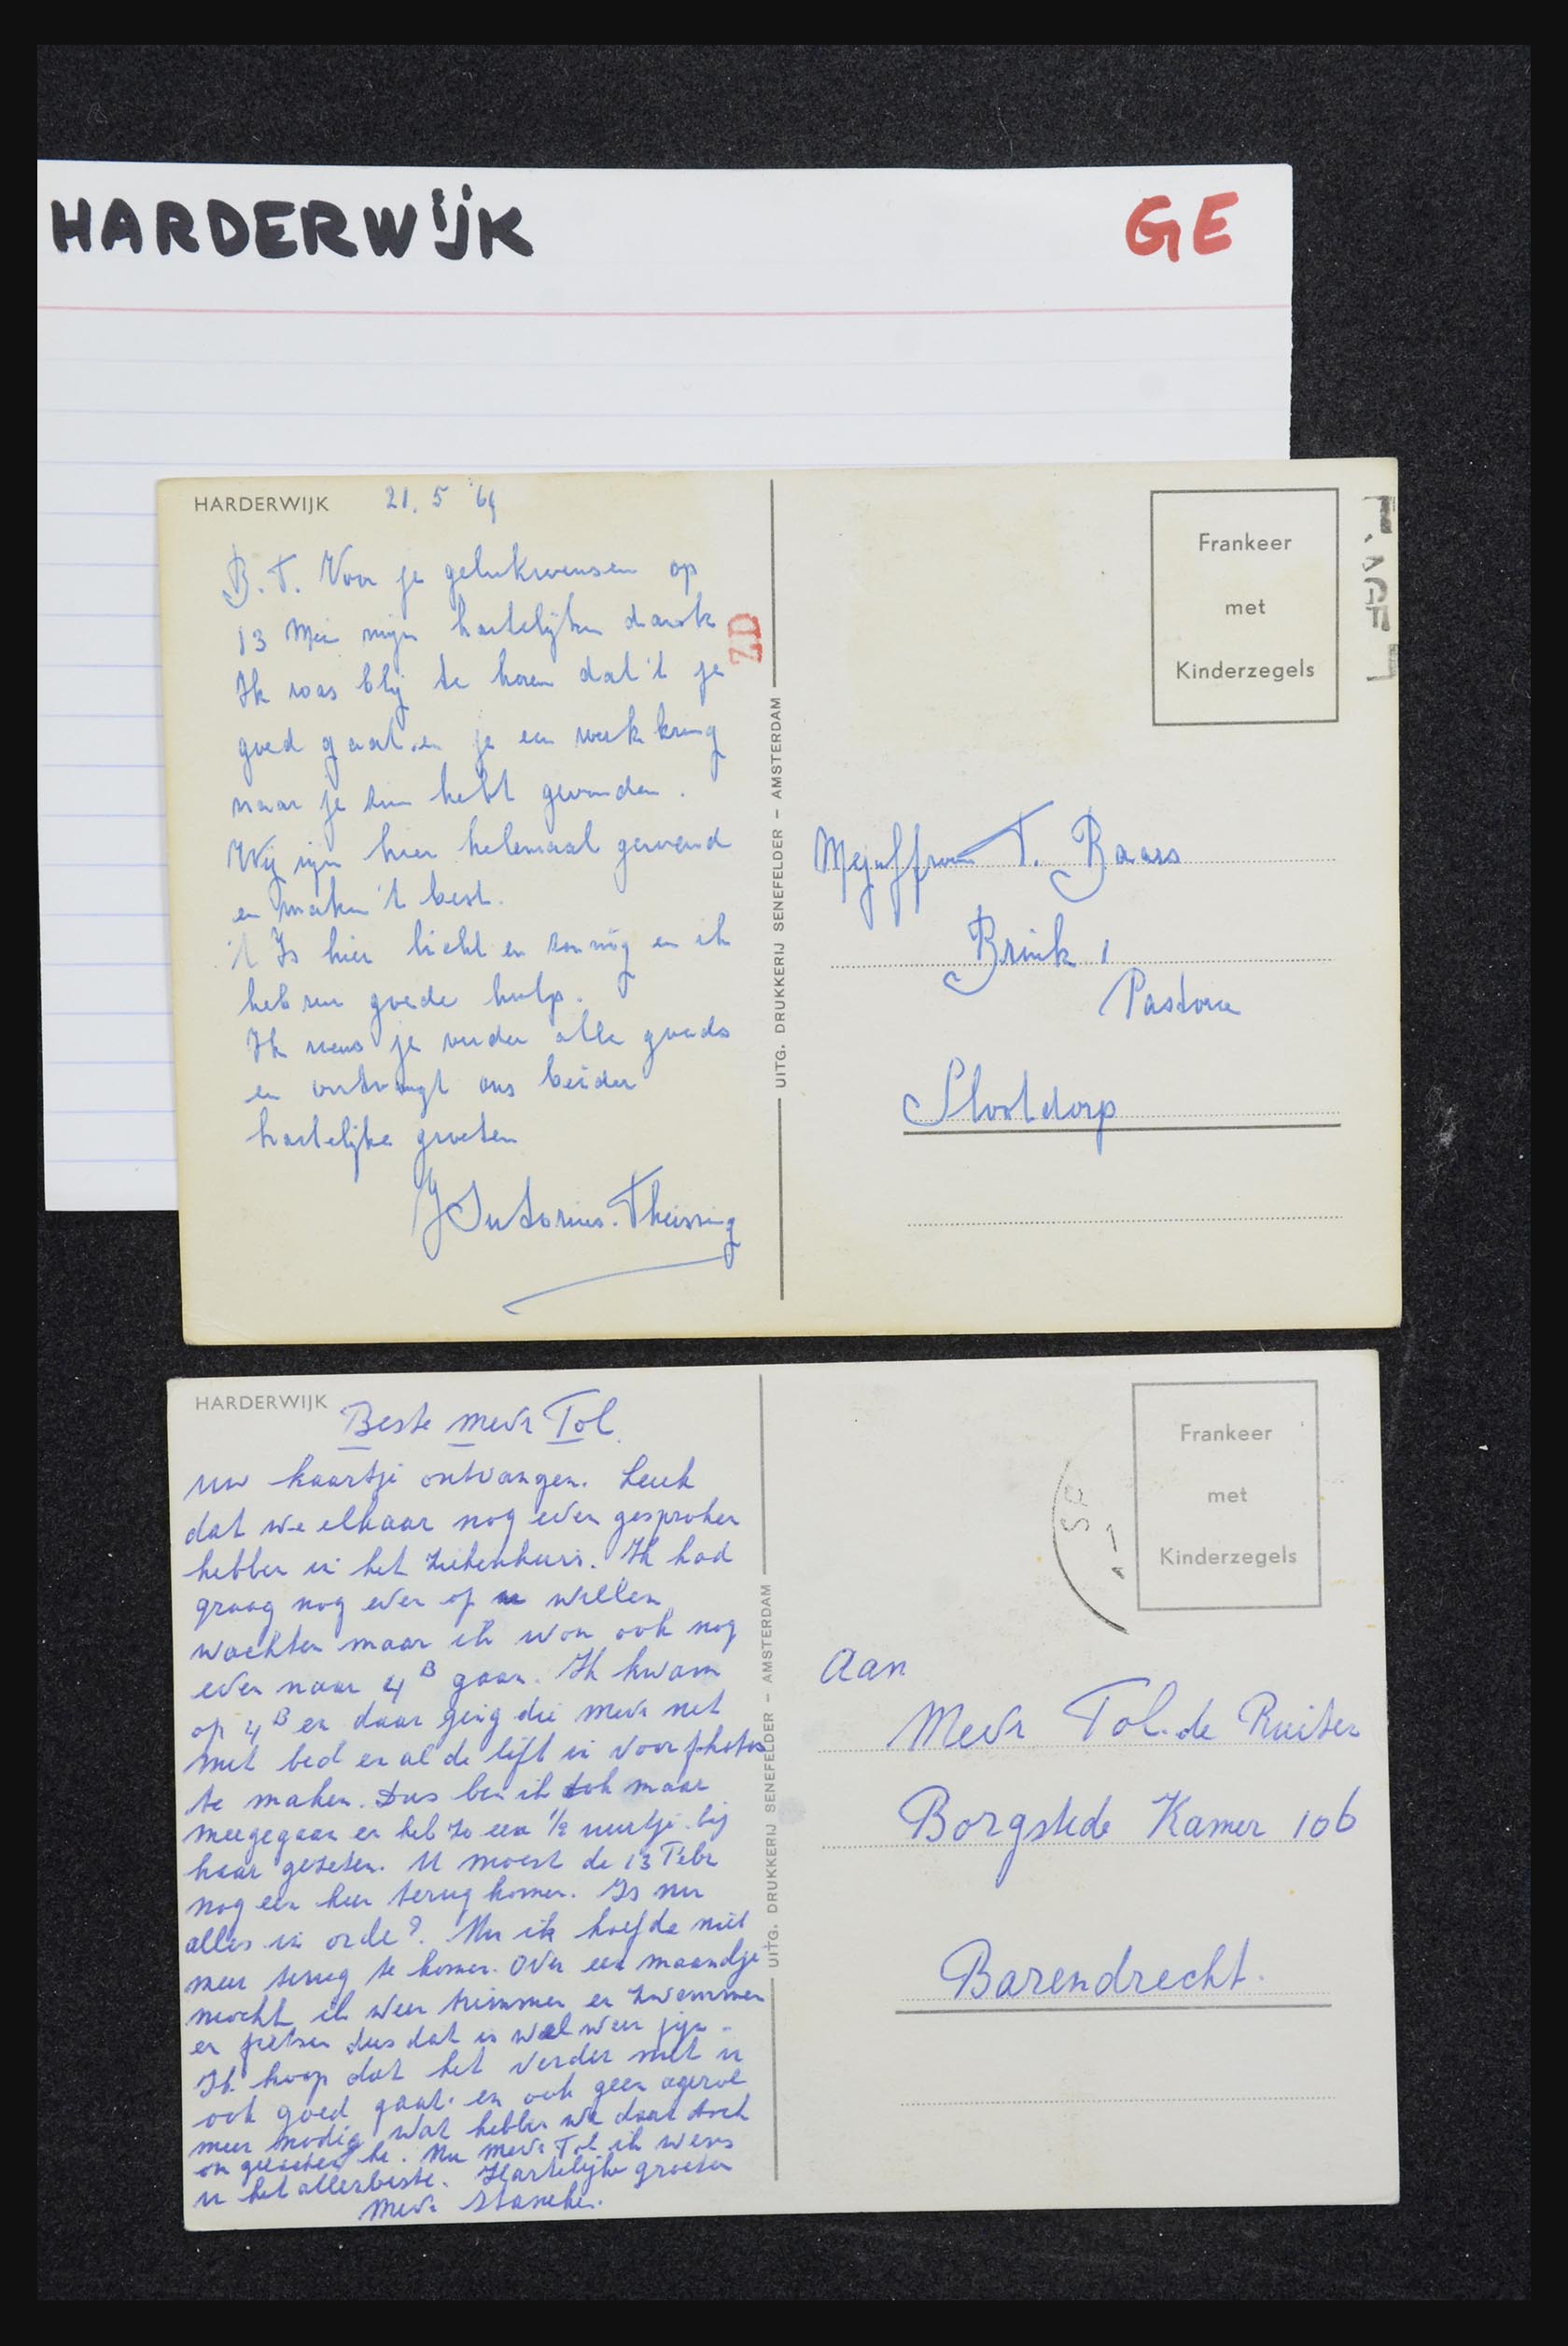 HARDERWIJK
GE
HARDERWIJK 21. 5 '69
B. T. Voor je gelukwensen op
13 Mei mijn hartelijken dank
Ik was blij te horen dat 't je
goed gaat en je een werkkring
naar je zin hebt gevonden.
Wij zijn hier helemaal gewend
en maken 't best.
't Is hier licht en zonnig en ik
heb een goede hulp.
Ik wens je verder alle goeds
en ontvangt ons beider
hartelijke groeten
Theissing
ZD
UITG. DRUKKERIJ SENEFELDER – AMSTERDAM
Frankeer
met
Kinderzegels
Mejuffrouw T. Baars
Brink 1
Pastorie
Slootdorp
HARDERWIJK
Beste Mevr Tol
uw kaartje ontvangen. Leuk
dat we elkaar nog even gesproken
hebben in het Ziekenhuis. Ik had
graag nog even op u willen
wachten maar ik wou ook nog
even naar 4B gaan. Ik kwam
op 4B en daar ging die mevr net
met bed en al de lift in voor photos
te maken. Dus ben ik toh maar
meegegaan en heb zo een 1/2 uurtje bij
haar gezeten. U moest de 13 Febr
nog een keer terug komen. Is nu
alles in orde? Nu ik hoefde niet
meer terug te komen. Over een maandje
mocht ik weer trimmen en zwemmen
en fietsen dus dat is wel weer fijn.
Ik hoop dat het verder met u
ook goed gaat en ook geen
meer nodig wat hebben we daar toch
on he. Nu mevr Tol ik wens
u het allerbeste. Hartelijke groeten
Mevr
UITG. DRUKKERIJ SENEFELDER – AMSTERDAM
Frankeer
met
Kinderzegels
Aan
Mevr Tol. de Ruiter
Borgstede Kamer 106
Barendrecht.